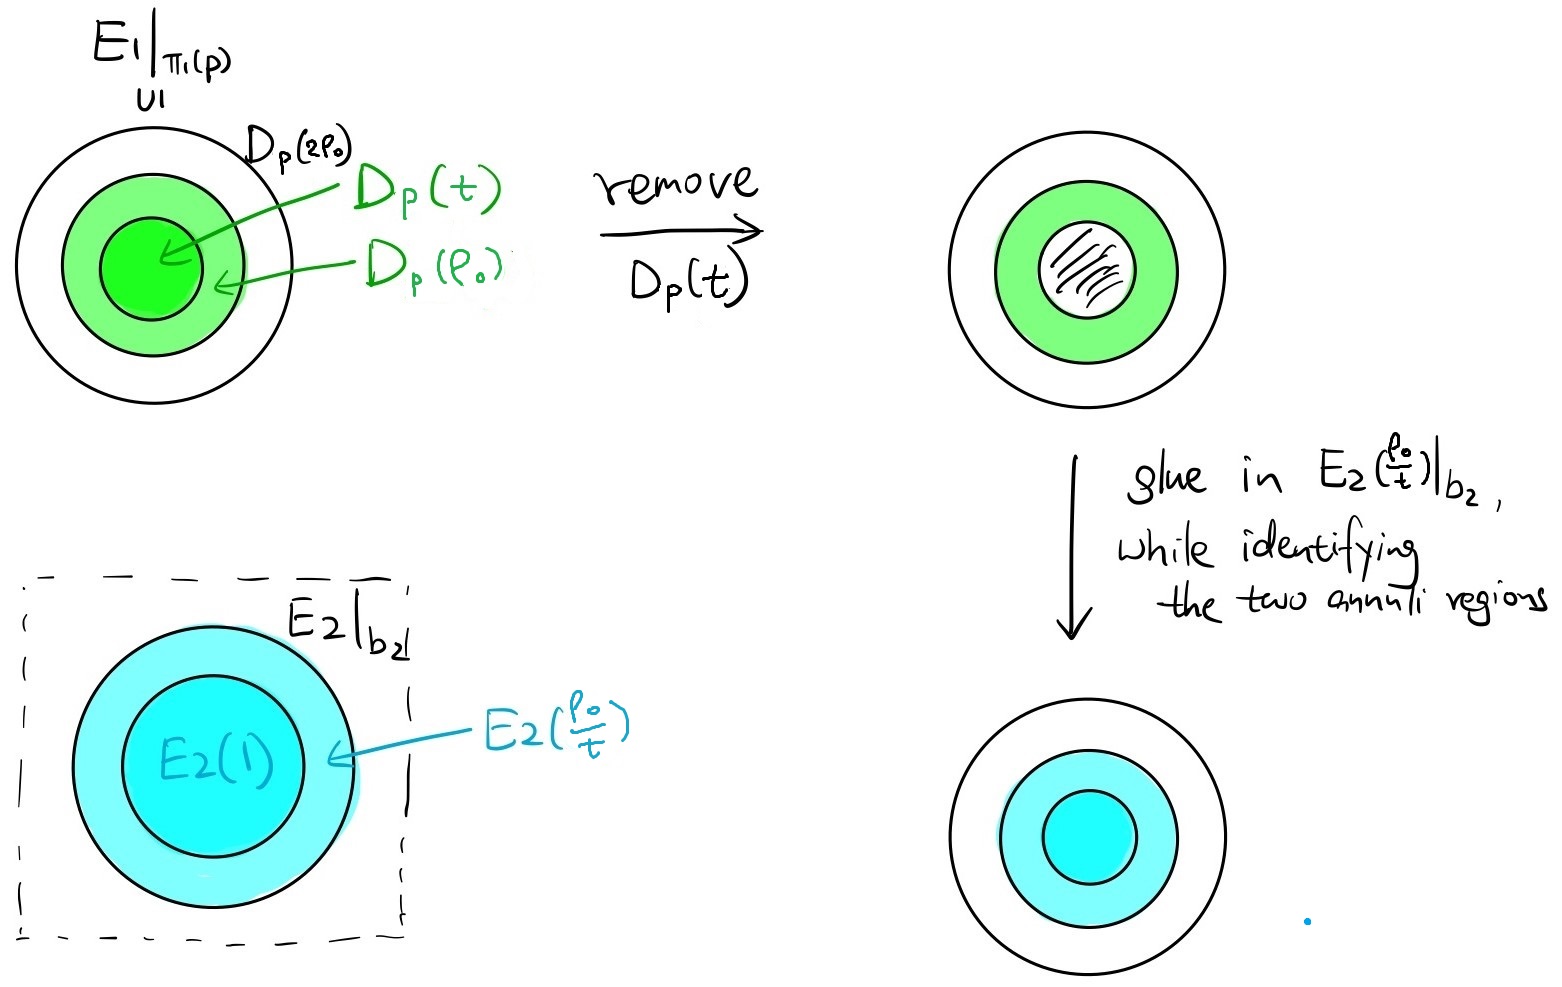 E₁|π₁(p)
∪|
Dₚ(2ρ₀)
Dₚ(t)
Dₚ(ρ₀)
remove
Dₚ(t)
glue in E₂(ρ₀/t)|b₂,
while identifying
the two annuli regions
E₂|b₂
E₂(1)
E₂(ρ₀/t)